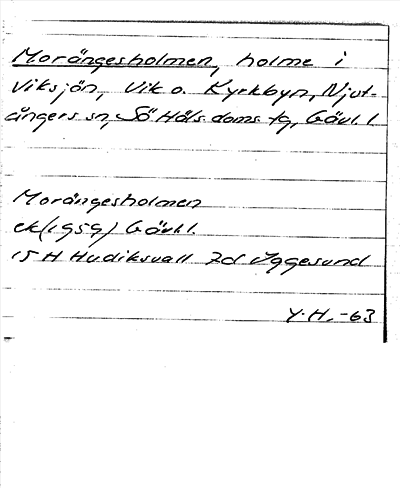 Morängesholmen, holme i
Viksjön, Vik o. Kyrkbyn, Njut-
ångers sn, Sö Häls. doms tg, Gävl. l
Morängesholmen
ek (1959) Gävl.
15 H Hudiksvall 7d Iggesund
Y.H. -63